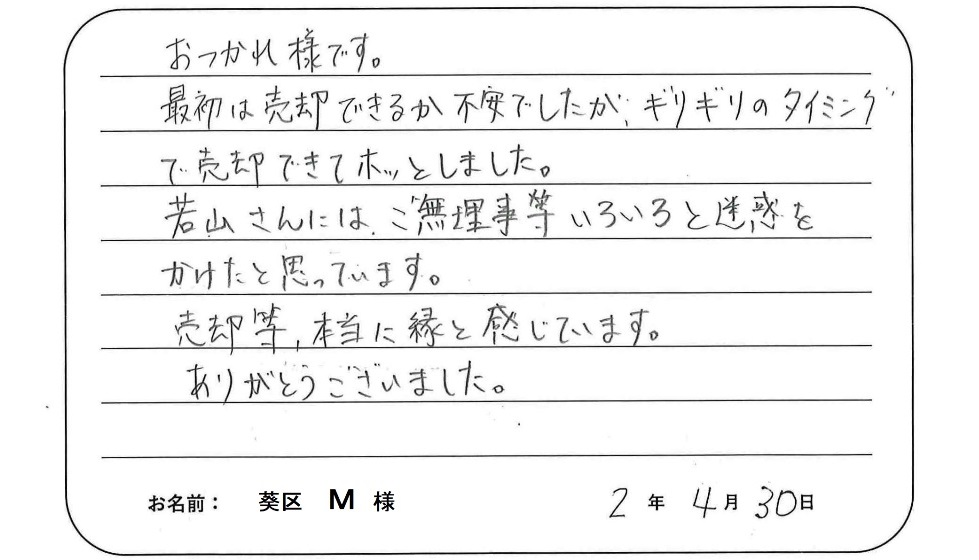 おつかれ様です。
最初は売却できるか不安でしたが、ギリギリのタイミング
で売却できてホッとしました。
若山さんには、ご無理事等いろいろと迷惑を
かけたと思っています。
売却等、本当に縁と感じています。
ありがとうございました。
お名前： 葵区 M 様 2 年 4 月 30 日